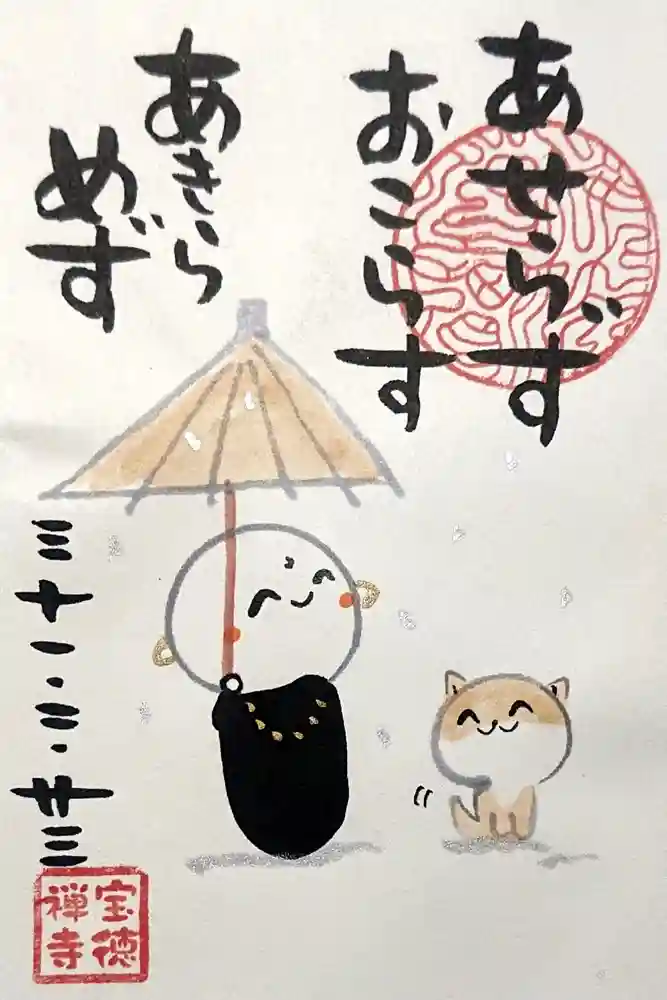 あせらず
おこらす
あきら
めず
三十一・二・廿三
宝徳
禅寺